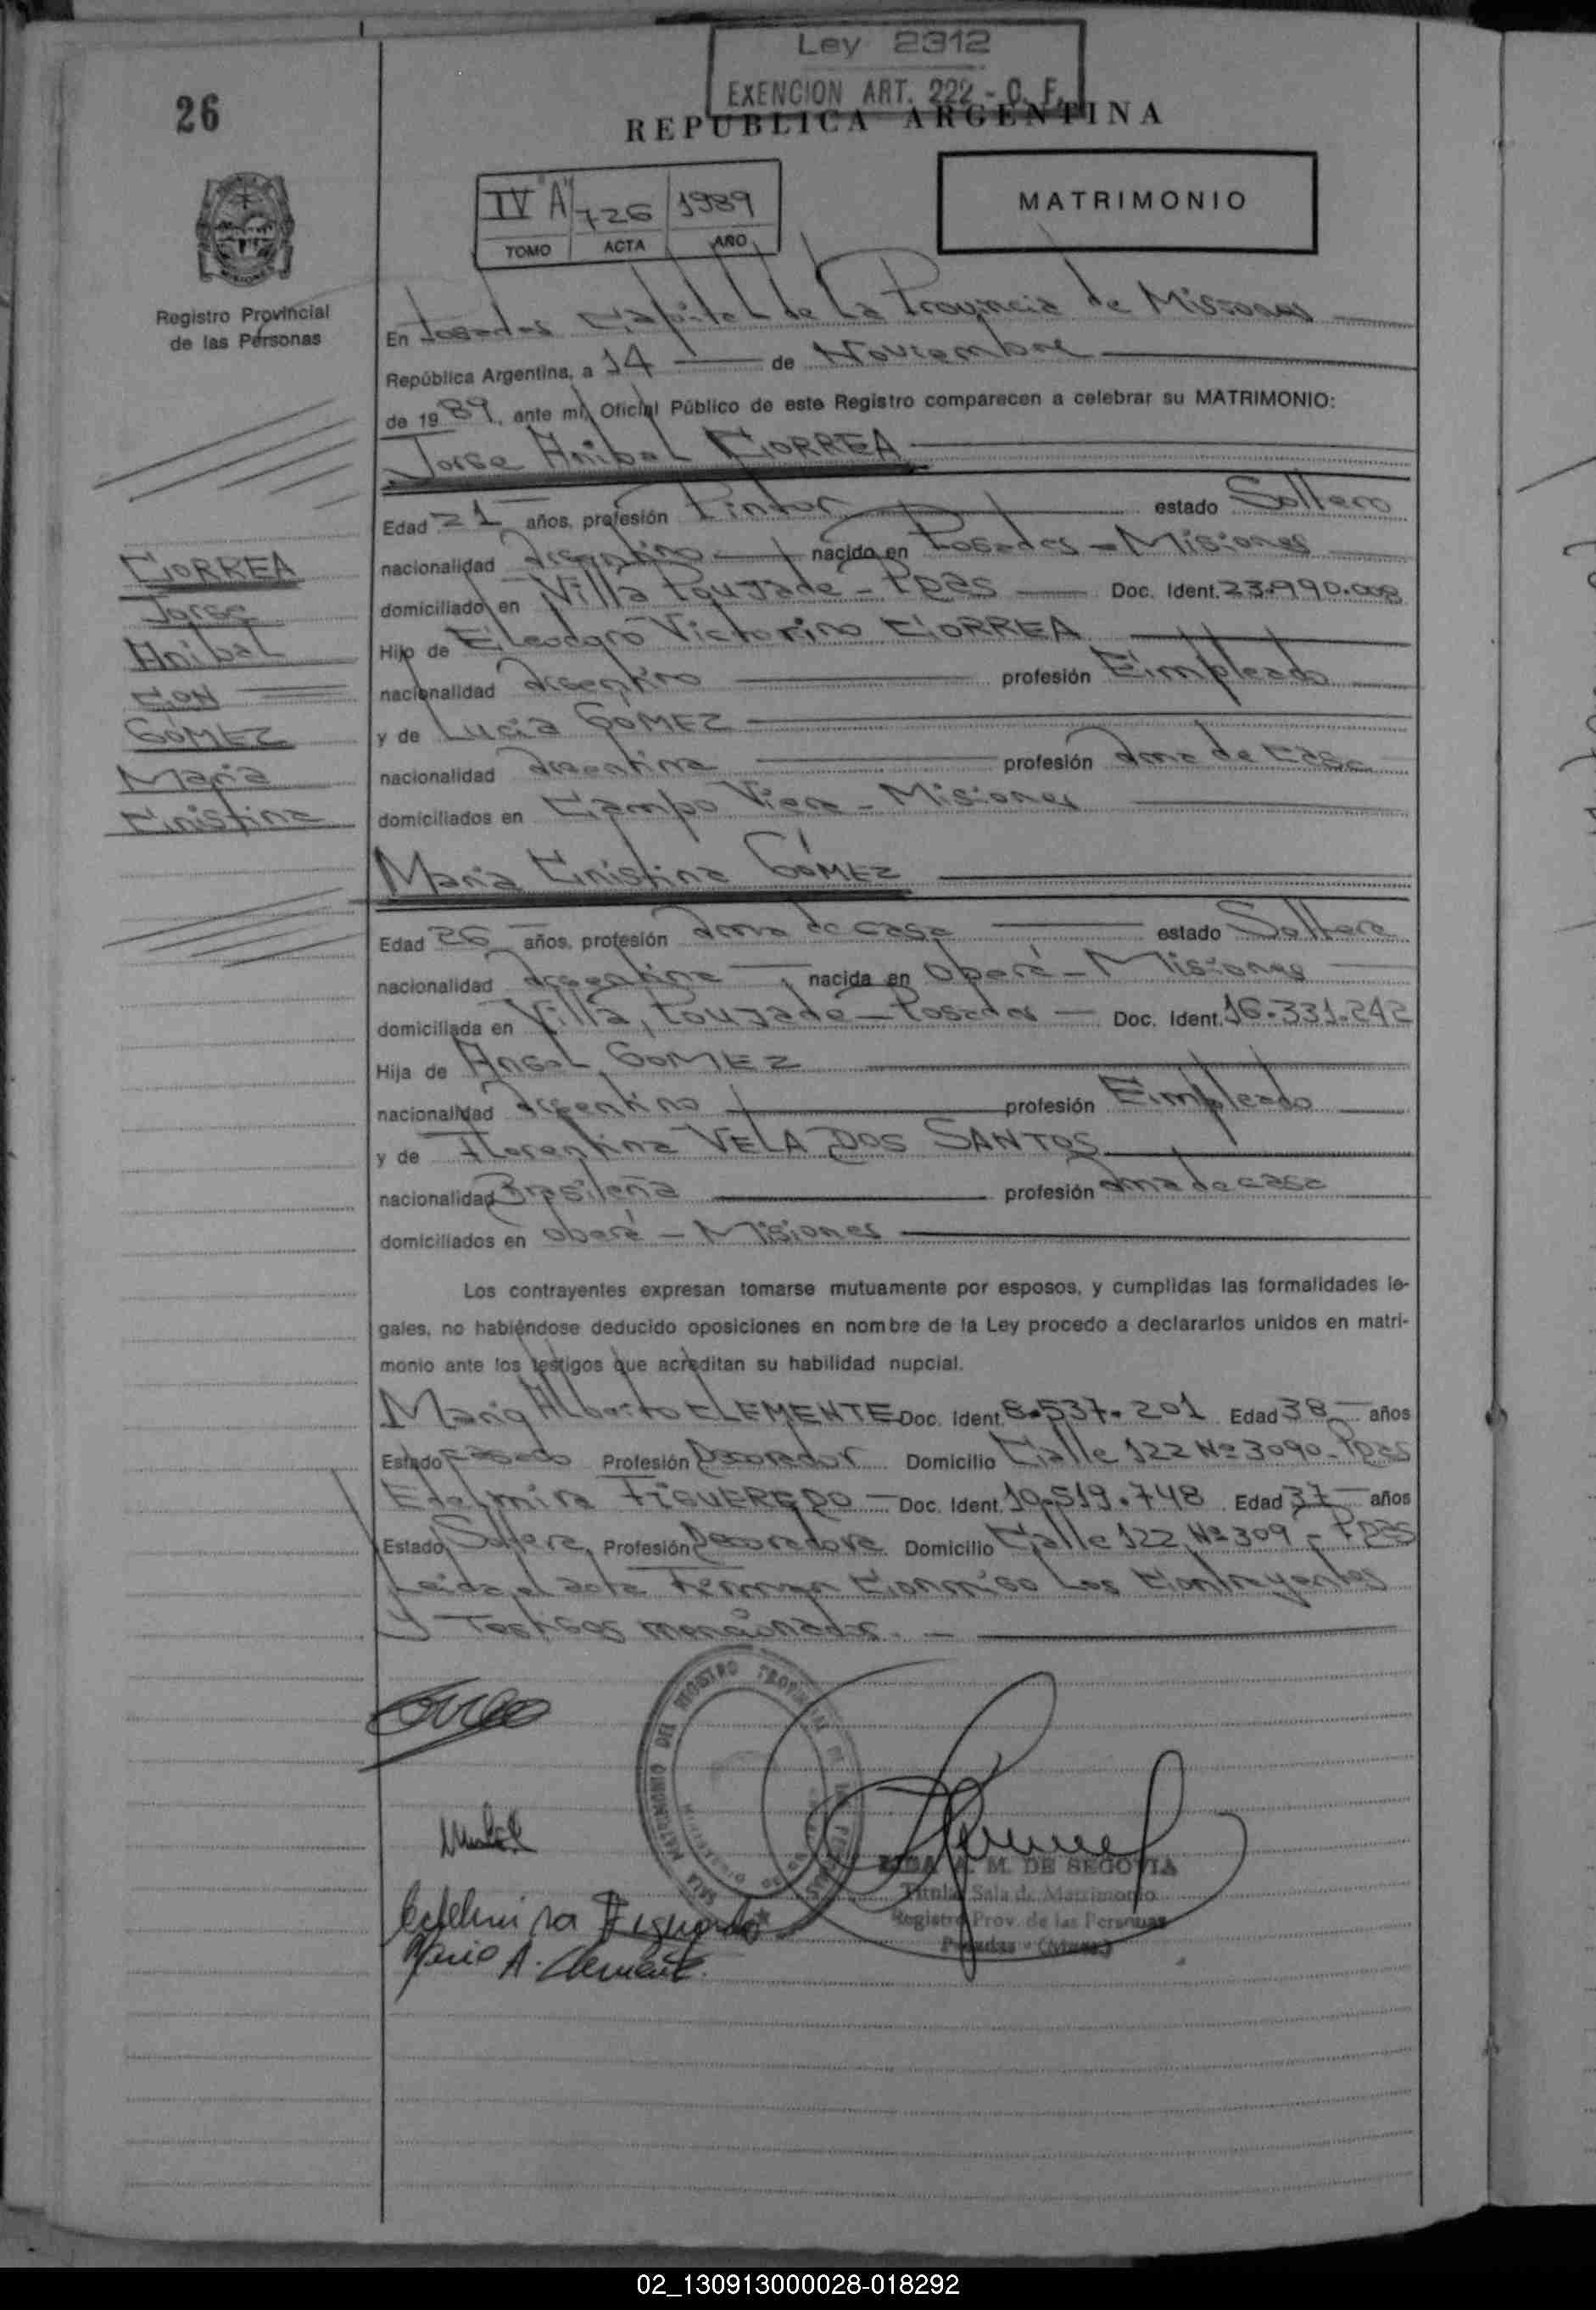 Ley 2312
EXENCION ART. 222 - C. F.
REPUBLICA ARGENTINA
26
IV "A" 726 1989
TOMO ACTA AÑO
MATRIMONIO
Registro Provincial
de las Personas
En Posadas Capital de la Provincia de Misiones
República Argentina, a 14 de Noviembre
de 1989, ante mí, Oficial Público de este Registro comparecen a celebrar su MATRIMONIO:
Jorge Anibal CORREA
Edad 21 años, profesión Pintor estado Soltero
nacionalidad Argentino nacido en Posadas - Misiones
domiciliado en Villa Poujade - Pdas Doc. Ident. 23.990.008
Hijo de Eleodoro Victorino CORREA
nacionalidad Argentino profesión Empleado
y de Lucia GOMEZ
nacionalidad Argentina profesión Ama de Casa
domiciliados en Campo Viera - Misiones
CORREA
Jorge
Anibal
CON
GÓMEZ
Maria
Cristina
Maria Cristina GÓMEZ
Edad 26 años, profesión Ama de casa estado Soltera
nacionalidad Argentina nacida en Oberá - Misiones
domiciliada en Villa Poujade - Posadas Doc. Ident. 16.331.242
Hija de Angel GOMEZ
nacionalidad Argentino profesión Empleado
y de Florentina VELA DOS SANTOS
nacionalidad Brasileña profesión Ama de casa
domiciliados en Oberá - Misiones
Los contrayentes expresan tomarse mutuamente por esposos, y cumplidas las formalidades le-
gales, no habiéndose deducido oposiciones en nombre de la Ley procedo a declararlos unidos en matri-
monio ante los testigos que acreditan su habilidad nupcial.
Mario Alberto CLEMENTE Doc. Ident. 8.537.201 Edad 38 años
Estado Casado Profesión Decorador Domicilio Calle 122 Nº 3090 - Pdas
Edelmira FIGUEREDO - Doc. Ident. 10.519.748 Edad 37 años
Estado Soltera Profesión Decoradora Domicilio Calle 122 Nº 309 - Pdas
Leida el acta Firman Conmigo Los Contrayentes
y Testigos mencionados. -
SALA MATRIMONIO DEL REGISTRO PROVINCIAL DE LAS PERSONAS
A. M. DE SEGOVIA
Titular Sala de Matrimonio
Registro Prov. de las Personas
Posadas - (Mnes.)
Edelmira Figueredo
Mario A. Clemente.
02_130913000028-018292